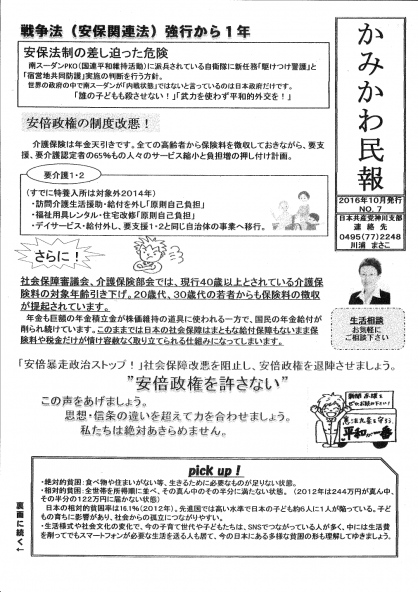 かみかわ民報
2016年10月発行
NO.7
日本共産党神川支部
連絡先
0495(77)2248
川浦 まさこ
生活相談
お気軽に
ご相談下さい
戦争法（安保関連法）強行から1年
安保法制の差し迫った危険
南スーダンPKO(国連平和維持活動)に派兵されている自衛隊に新任務「駆けつけ警護」と
「宿営地共同防護」実施の判断を行う方針。
世界の政府の中で南スーダンが「内戦状態」ではないと言っているのは日本政府だけです。
「誰の子どもも殺させない！」「武力を使わず平和的外交を！」
安倍政権の制度改悪！
介護保険は年金天引きです。全ての高齢者から保険料を徴収しておきながら、要支
援、要介護認定者の65%もの人々のサービス縮小と負担増の押し付け計画。
要介護1・2
(すでに特養入所は対象外2014年)
・訪問介護生活援助・給付を外し「原則自己負担」
・福祉用具レンタル・住宅改修「原則自己負担」
・デイサービス・給付外し、要支援1・2と同じ自治体の事業へ移行。
さらに！
社会保障審議会、介護保険部会では、現行40歳以上とされている介護保
険料の対象年齢引き下げ。20歳代、30歳代の若者からも保険料の徴収
が提起されています。
年金も巨額の年金積立金が株価維持の道具に使われる一方で、国民の年金給付が
削られ続けています。このままでは日本の社会保障はまともな給付保障もないまま保
険料や税金だけが情け容赦なく取り立てられる仕組みになってしまいます。
「安倍暴走政治ストップ！」社会保障改悪を阻止し、安倍政権を退陣させましょう。
”安倍政権を許さない”
この声をあげましょう。
思想・信条の違いを超えて力を合わせましょう。
私たちは絶対あきらめません。
憲法九条を守ろう
平和が一番
pick up！
・絶対的貧困：食べ物や住まいがない等、生きるために必要なものが足りない状態。
・相対的貧困：全世帯を所得順に並べ、その真ん中のその半分に満たない状態。（2012年は244万円が真ん中、
その半分の122万円に届かない状態）
日本の相対的貧困率は16.1%(2012年)。先進国では高い水準で日本の子ども約6人に1人が陥っている。子ど
もの育ちに影響があり、社会からの孤立につながりやすい。
・生活様式や社会文化の変化で、今の子育て世代や子どもたちは、SNSでつながっている人が多く、中には生活費
を削ってでもスマートフォンが必要な生活を送る人も居て、今の日本にある多様な貧困の形も理解してゆきましょう。
裏面に続く↓